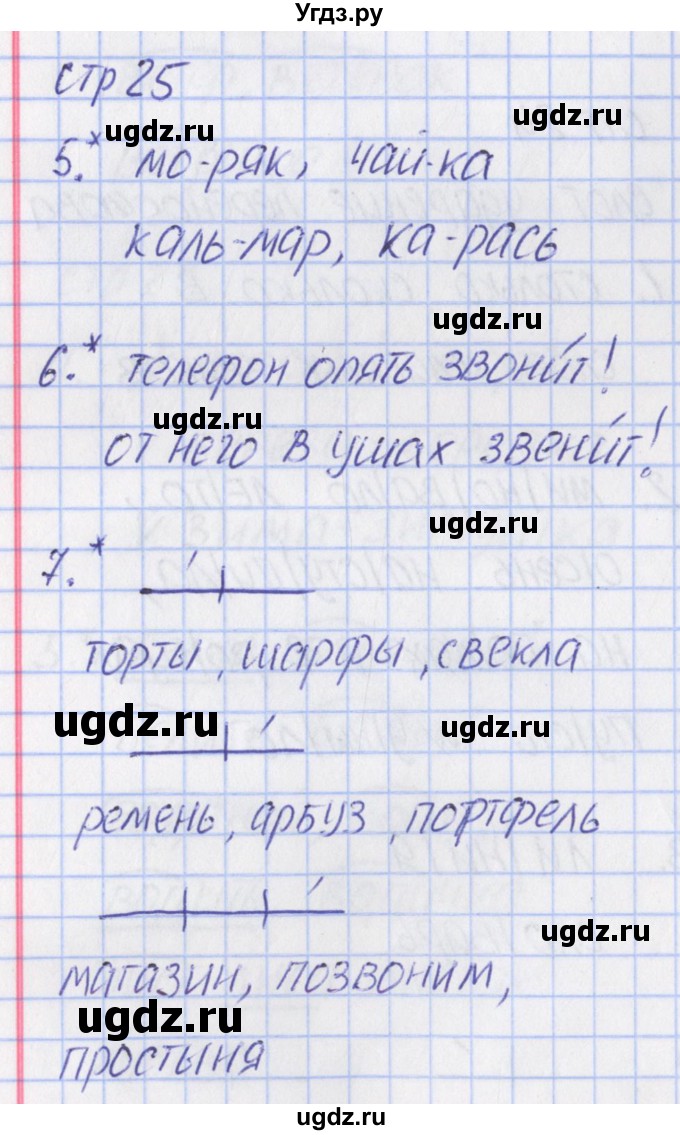 Угдз.ру
стр 25
ugdz.ru
ugdz.ru
5.* мо-ряк, чай-ка
каль-мар, ка-рась
ugdz.ru
6.* телефон опять звони́т!
ugdz.ru
от него в ушах звени́т!
ugdz.ru
7.*
торты, шарфы, свекла
ugdz.ru
ugdz.ru
ремень, арбуз, портфель
ugdz.ru
магазин, позвоним,
ugdz.ru
простыня
ugdz.ru